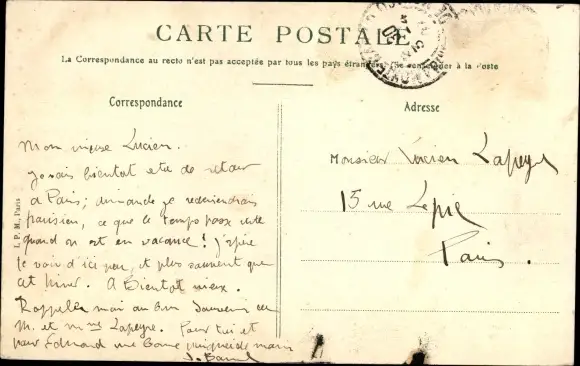 CARTE POSTALE
La Correspondance au recto n'est pas acceptée par tous les pays étrangers. (Se renseigner à la Poste
Correspondance
Adresse
Mon vieux Lucien.
Je vais bientot etre de retour
a Paris; dimanche je redeviendrais
parisien, ce que le temps passe vite
quand on est en vacance! J'espère
te voir d'ici peu, et plus souvent que
cet hiver. A Bientot vieux.
Rappelle moi au bon souvenir de
M. et Mme Lapeyre. Pour toi et
pour Edouard une bonne poignée de main
J.
Monsieur Lucien Lapeyre
15 rue Lepic
Paris.
I. P. M., Paris